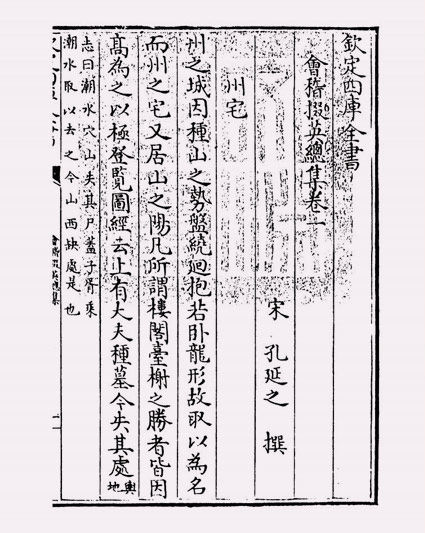 欽定四庫全書
會稽掇英總集卷一
宋 孔延之 撰
州宅
州之城因種山之勢盤繞迴抱若卧龍形故取以為名
而州之宅又居山之陽凡所謂樓閣臺榭之勝者皆因
髙為之以極登覽圖經云上有大夫種墓今失其處輿地
志曰潮水穴山失其尸蓋子胥乗
潮水取以去之今山西缺處是也
會稽掇英總集